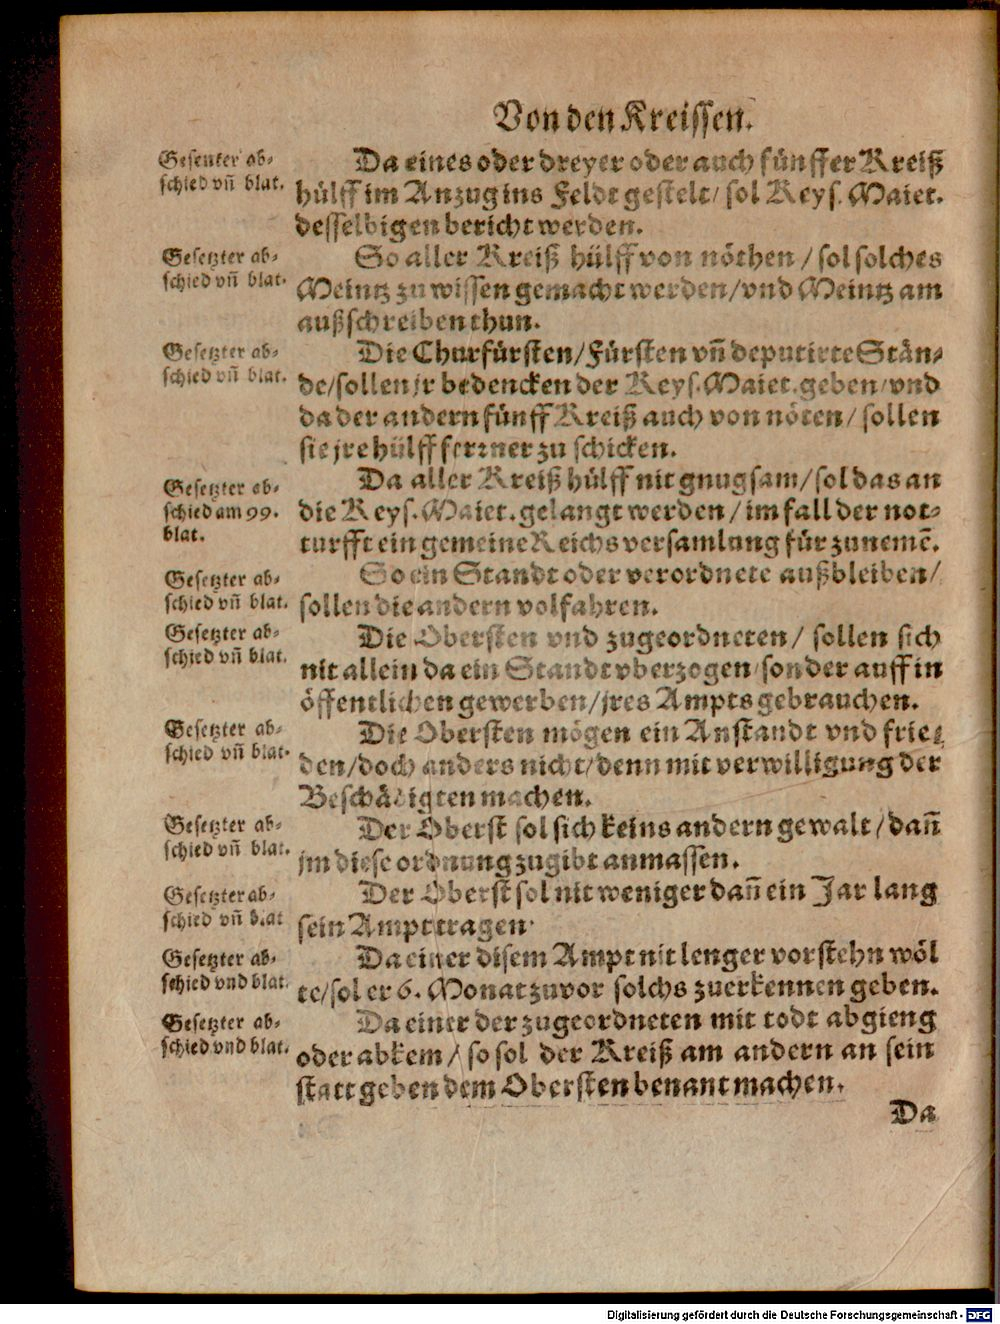 Von den Kreissen.
Gesetzter ab-
schied vn̄ blat.
Da eines oder dreyer oder auch fünffer Kreiß
hülff im Anzug ins Feldt gestelt/ sol Keys. Maiet.
desselbigen bericht werden.
Gesetzter ab-
schied vn̄ blat.
So aller Kreiß hülff von nöthen / sol solches
Meintz zu wissen gemacht werden/vnd Meintz am
außschreiben thun.
Gesetzter ab-
schied vn̄ blat.
Die Churfürsten/Fürsten vn̄ deputirte Stän-
de/sollen jr bedencken der Keys. Maiet. geben/vnd
da der andern fünff Kreiß auch von nöten/ sollen
sie jre hülff ferrner zu schicken.
Gesetzter ab-
schied am 99.
blat.
Da aller Kreiß hülff nit gnugsam/sol das an
die Keys. Maiet. gelangt werden / im fall der not-
turfft ein gemeine Reichsversamlung für zunemē.
Gesetzter ab-
schied vn̄ blat.
So ein Standt oder verordnete außbleiben/
sollen die andern volfahren.
Gesetzter ab-
schied vn̄ blat.
Die Obersten vnd zugeordneten/ sollen sich
nit allein da ein Standt vberzogen/sonder auff in
öffentlichen gewerben/jres Ampts gebrauchen.
Gesetzter ab-
schied vn̄ blat.
Die Obersten mögen ein Anstandt vnd frie-
den/doch anders nicht/denn mit verwilligung der
Beschädigten machen.
Gesetzter ab-
schied vn̄ blat.
Der Oberst sol sich keins andern gewalt/dañ
jm diese ordnung zugibt anmassen.
Gesetzter ab-
schied vn̄ blat
Der Oberst sol nit weniger dañ ein Jar lang
sein Ampt tragen.
Gesetzter ab-
schied vnd blat.
Da einer disem Ampt nit lenger vorstehn wöl
te/sol er 6. Monat zuvor solchs zuerkennen geben.
Gesetzter ab-
schied vnd blat.
Da einer der zugeordneten mit todt abgieng
oder abkem/ so sol der Kreiß am andern an sein
statt geben dem Obersten benant machen.
Da
Digitalisierung gefördert durch die Deutsche Forschungsgemeinschaft - DFG